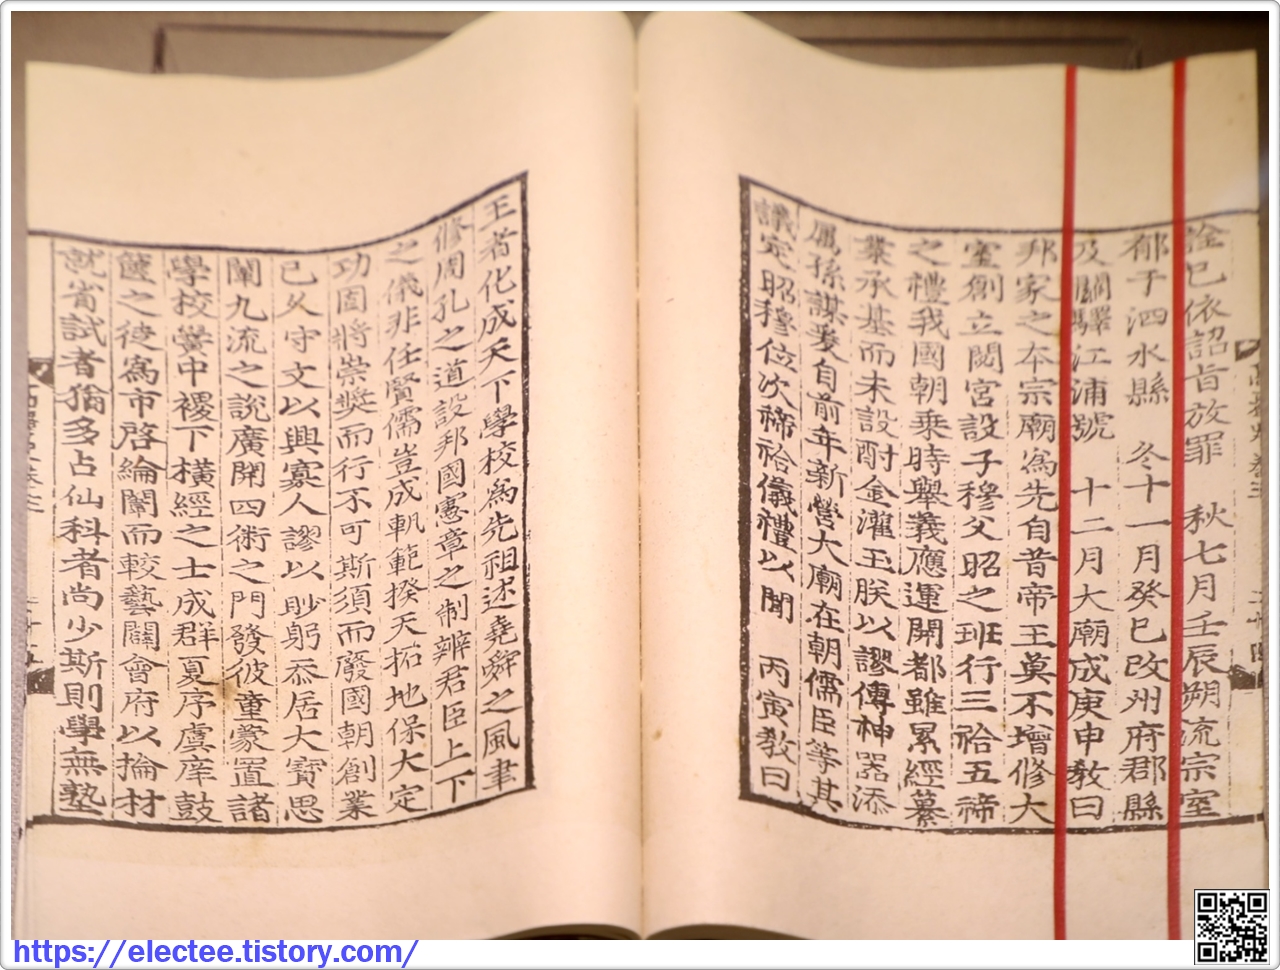 高麗史 卷三
二十四
詮已依詔旨放罪　秋七月壬辰朔流宗室
郁于泗水縣　冬十一月癸巳改州府郡縣
及關驛江浦號　十二月大廟成庚申敎曰
邦家之本宗廟爲先自昔帝王莫不增修大
室創立閟宮設子穆父昭之班行三祫五禘
之禮我國朝乘時擧義應運開都雖累經纂
業承基而未設酎金灌玉朕以謬傳神器添
屬孫謀爰自前年新營大廟在朝儒臣等其
議定昭穆位次禘祫儀禮以聞　丙寅敎曰
王者化成天下學校爲先祖述堯舜之風聿
修周孔之道設邦國憲章之制辨君臣上下
之儀非任賢儒豈成軌範揆天拓地保大定
功固將崇奬而行不可斯須而廢國朝創業
已久守文以興寡人謬以眇躬忝居大寶思
闡九流之說廣開四術之門發彼童蒙置諸
學校黌中稷下橫經之士成群夏序虞庠鼓
篋之徒爲市啓綸闈而較藝闢會府以掄材
就省試者猶多占仙科者尚少斯則學無塾
https://electee.tistory.com/